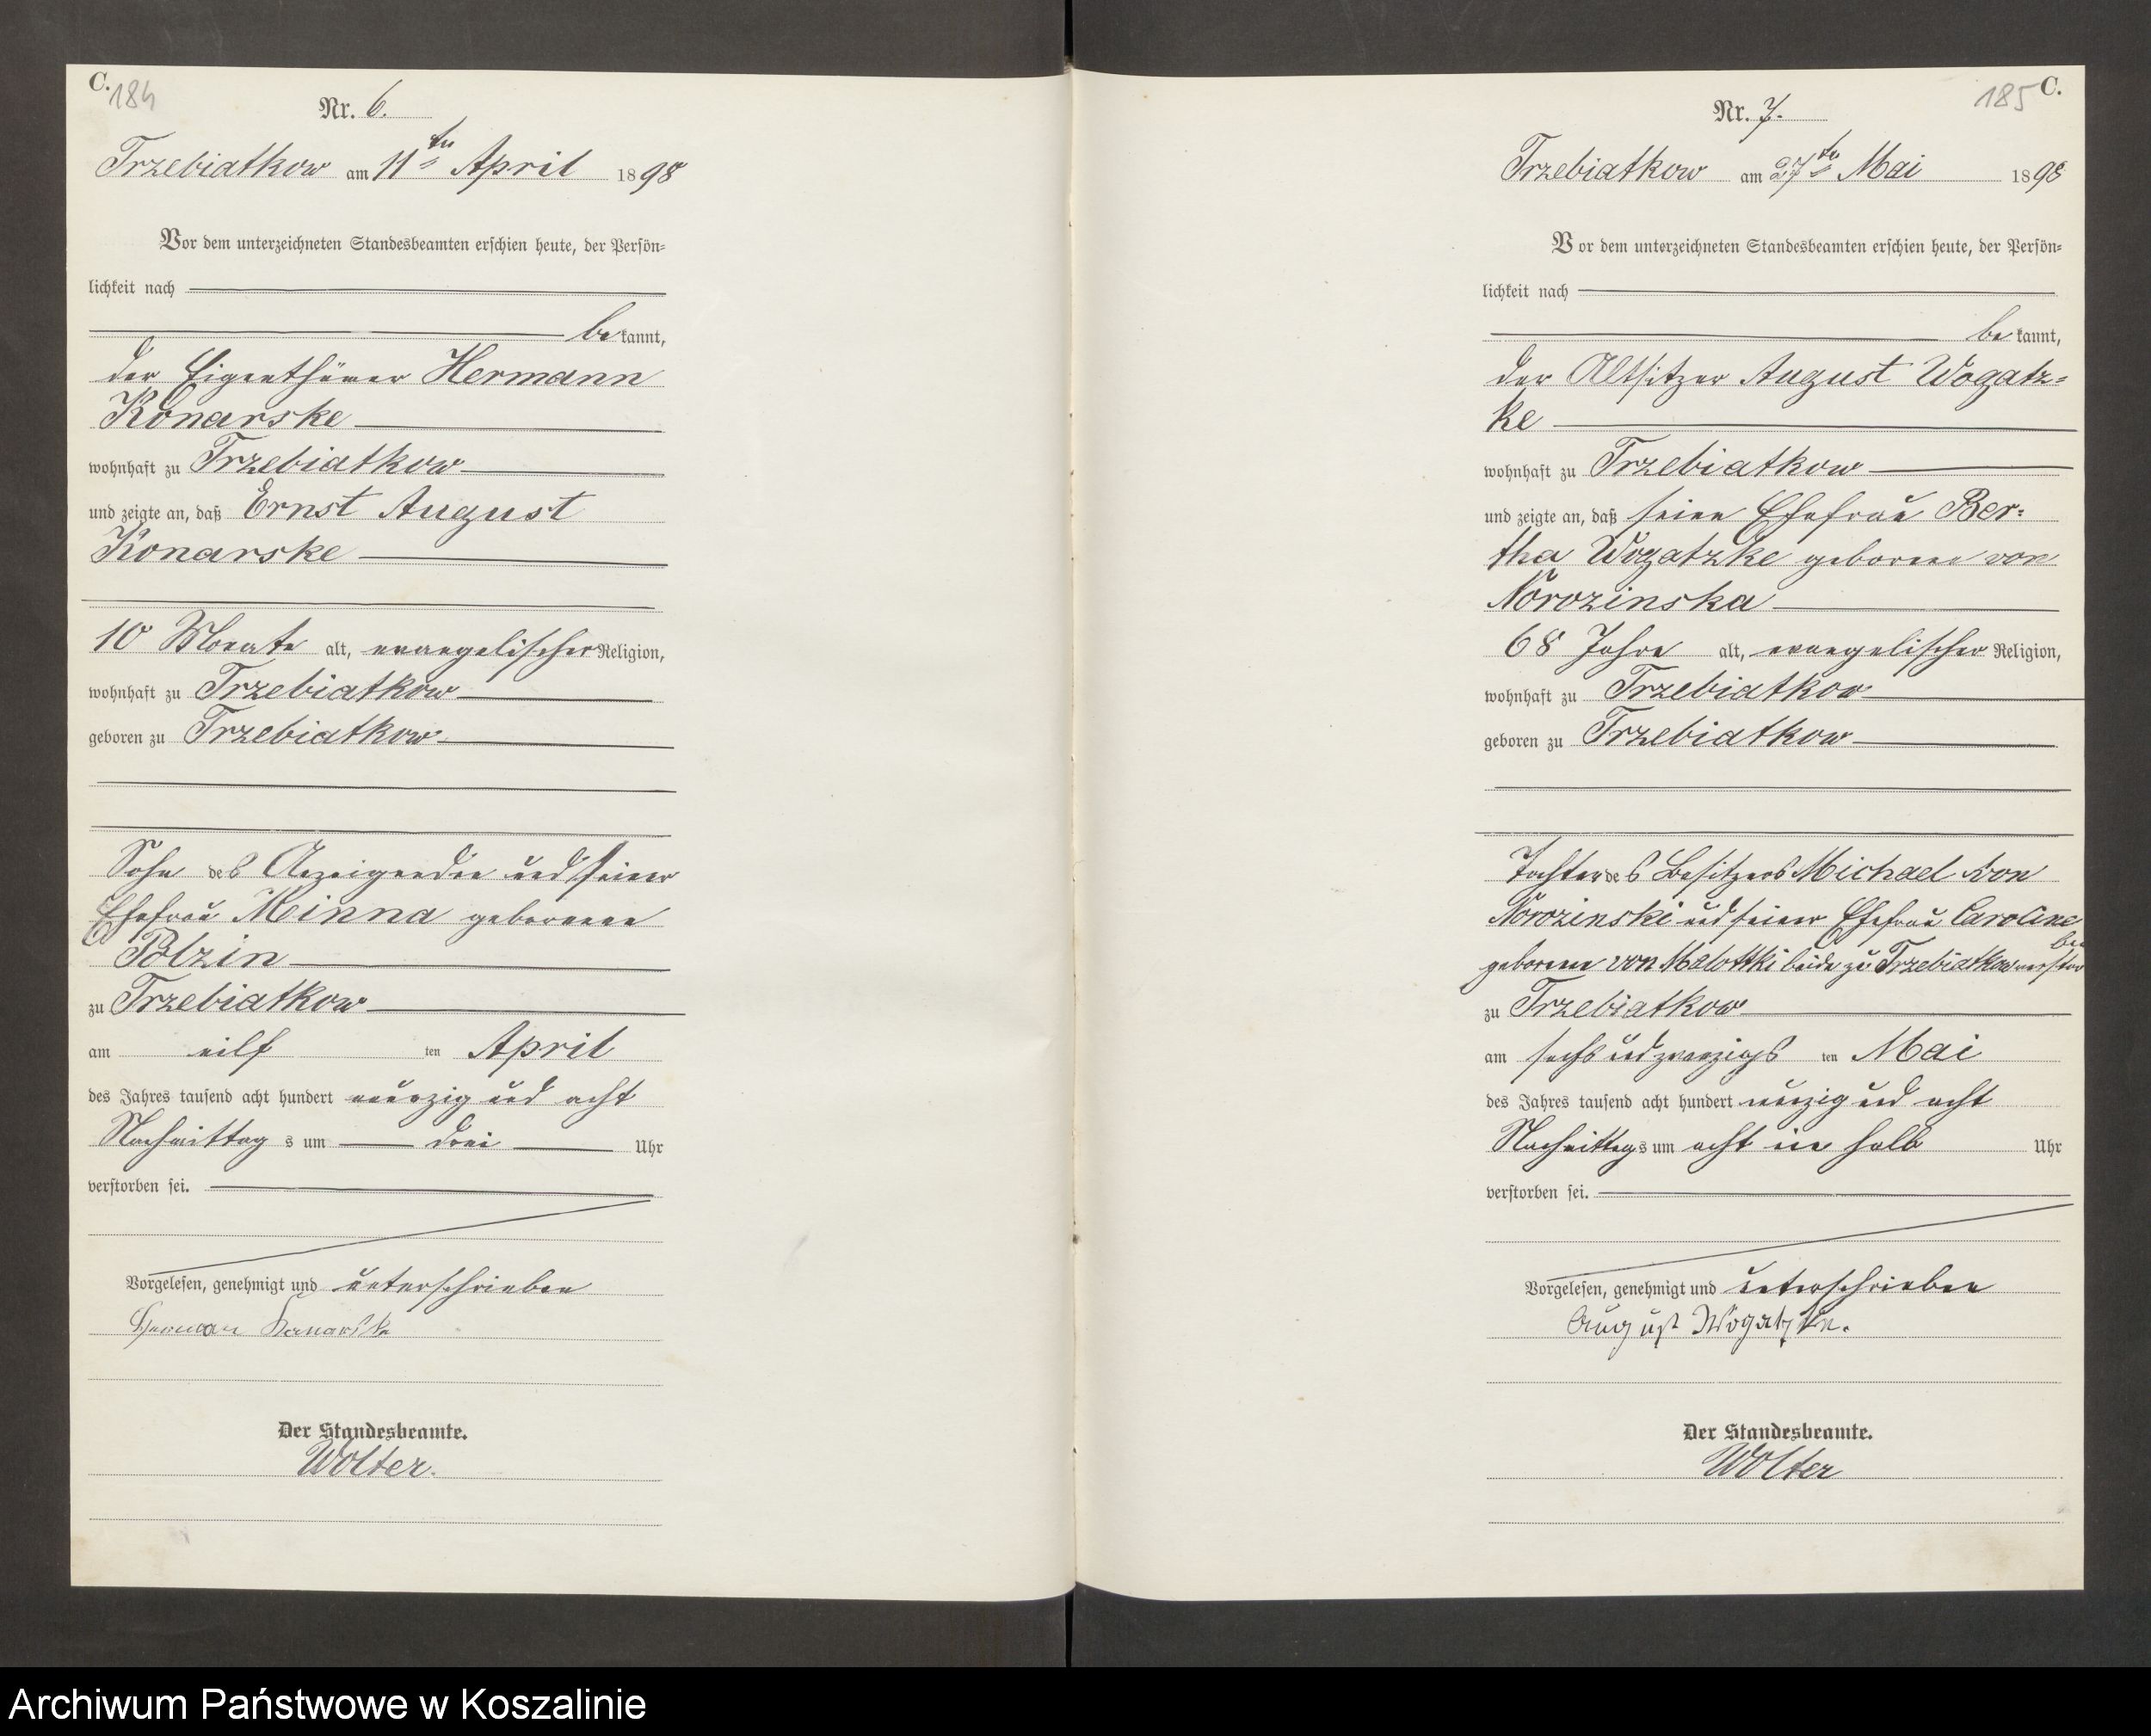 C.
184
Nr. 6.
Trzebiatkow am 11ten April 1898
Vor dem unterzeichneten Standesbeamten erschien heute, der Persön-
lichkeit nach
bekannt,
der Eigenthümer Hermann
Konarske
wohnhaft zu Trzebiatkow
und zeigte an, daß Ernst August
Konarske
10 Monate alt, evangelischer Religion,
wohnhaft zu Trzebiatkow
geboren zu Trzebiatkow
Sohn des Anzeigenden und seiner
Ehefrau Minna geborenen
Polzin
zu Trzebiatkow
am eilf ten April
des Jahres tausend acht hundert neunzig und acht
Nachmittags um drei Uhr
verstorben sei.
Vorgelesen, genehmigt und unterschrieben
Herman Konarske
Der Standesbeamte.
Wolter.
185
C.
Nr. 7.
Trzebiatkow am 27ten Mai 1898
Vor dem unterzeichneten Standesbeamten erschien heute, der Persön-
lichkeit nach
bekannt,
der Altsitzer August Wogatz-
ke
wohnhaft zu Trzebiatkow
und zeigte an, daß seine Ehefrau Ber-
tha Wogatzke geborene von
Worozinska
68 Jahre alt, evangelischer Religion,
wohnhaft zu Trzebiatkow
geboren zu Trzebiatkow
Tochter des Besitzers Michael von
Worozinski und seiner Ehefrau Caroline
geborene von Malottki beide zu Trzebiatkow verstor
ben
zu Trzebiatkow
am sechs und zwanzigs ten Mai
des Jahres tausend acht hundert neunzig und acht
Nachmittags um acht ein halb Uhr
verstorben sei.
Vorgelesen, genehmigt und unterschrieben
August Wogatzke.
Der Standesbeamte.
Wolter
Archiwum Państwowe w Koszalinie